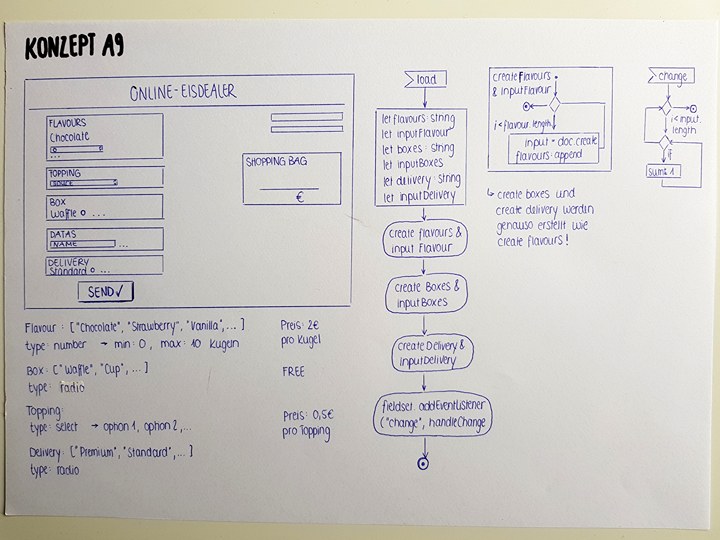 KONZEPT A9
ONLINE-EISDEALER
FLAVOURS
Chocolate
...
TOPPING
BOX
Waffle o ...
DATAS
NAME ...
DELIVERY
Standard o ...
SEND✓
SHOPPING BAG
€
Flavour: ["Chocolate", "Strawberry", "Vanilla",...]
type: number → min: 0, max: 10 Kugeln
Preis: 2€
pro Kugel
Box: ["Waffle", "Cup", ...]
type: radio
FREE
Topping:
type: select → option 1, option 2,...
Preis: 0,5€
pro Topping
Delivery: ["Premium", "Standard",...]
type: radio
load
let flavours: string
let inputFlavour
let boxes: string
let inputBoxes
let delivery: string
let inputDelivery
create flavours &
input Flavour
create Boxes &
inputBoxes
create Delivery &
inputDelivery
fieldset.addEventListener
("change", handleChange
createFlavours
& inputFlavour
i<flavour.length
input = doc.create
flavours.append
↳ create boxes und
create delivery werden
genauso erstellt wie
create flavours!
change
i<input.
length
if